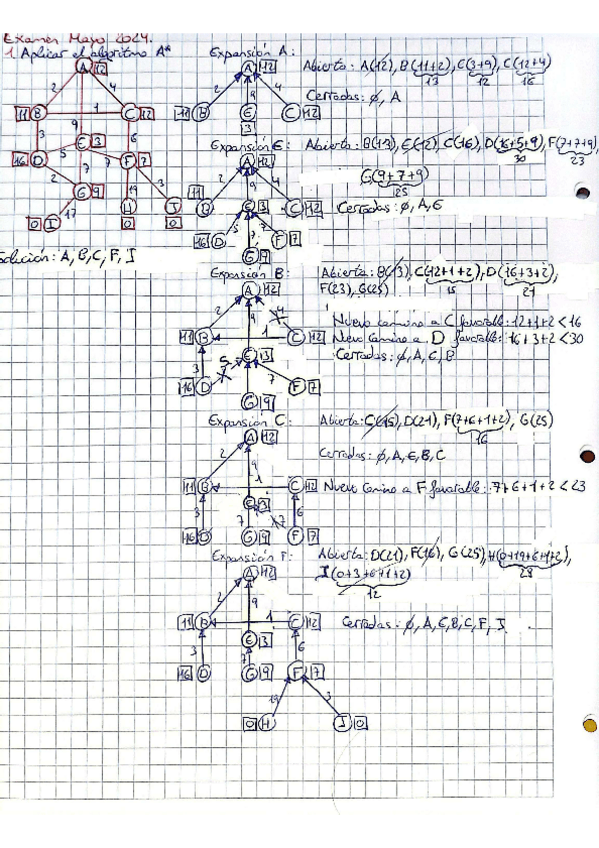 Examen Mayo 2024.
1. Aplicar el algoritmo A*
A 12
2 4
11 B 1 C 12
9
3 E 3 6
16 D 5 7 7 F 7
2 G 9 19 3
17
0 I H J
0 0
Solución: A, B, C, F, J
Expansión A:
A 12
2 9 4
11 B E C 12
3
Abierta: A(12), B(11+2), C(3+9), C(12+4)
13 12 16
Cerradas: ∅, A
Expansión E:
A 12
2 9 4
11 B E 3 C 12
16 D 5 7 7 F 7
G 9
Abierta: B(13), E(12), C(16), D(16+5+9), F(7+7+9),
30 23
G(9+7+9)
25
Cerradas: ∅, A, E
Expansión B:
A 12
2 9 4
11 B 1 C 12
3 5 E 3
16 D 7 7 F 7
G 9
Abierta: B(13), C(12+1+2), D(16+3+2),
15 21
F(23), G(25)
Nuevo camino a C favorable: 12+1+2<16
Nuevo camino a D favorable: 16+3+2<30
Cerradas: ∅, A, E, B
Expansión C:
A 12
2 9
11 B 1 C 12
3 E 3 6
7 7
16 D G 9 F 7
Abierta: C(15), D(21), F(7+6+1+2), G(25)
16
Cerradas: ∅, A, E, B, C
Nuevo camino a F favorable: 7+6+1+2<23
Expansión F:
A 12
2 9
11 B 1 C 12
3 E 3 6
7
16 D G 9 F 7
19 3
0 H J 0
Abierta: D(21), F(16), G(25), H(0+19+6+1+2),
28
J(0+3+6+1+2)
12
Cerradas: ∅, A, E, B, C, F, J